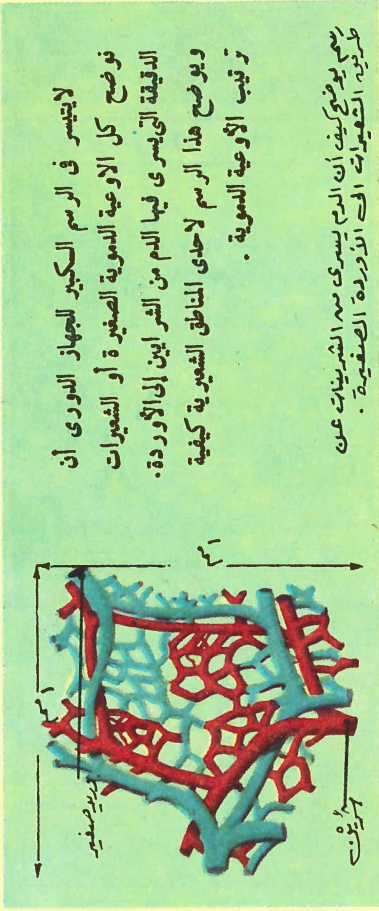 لايتيسر فى الرسم الكبير للجهاز الدورى أن
نوضح كل الاوعية الدموية الصغيرة أو الشعيرات
الدقيقة التى يسرى فيها الدم من الشرايين إلى الأوردة.
ويوضح هذا الرسم لاحدى المناطق الشعيرية كيفية
ترتيب الأوعية الدموية .
رسم يوضح كيف أن الدم يسرى من الشرينات عن
طريق الشعيرات الى الأوردة الصغيرة .
١ مم
١ مم
وريد صغير
شُرَيْن